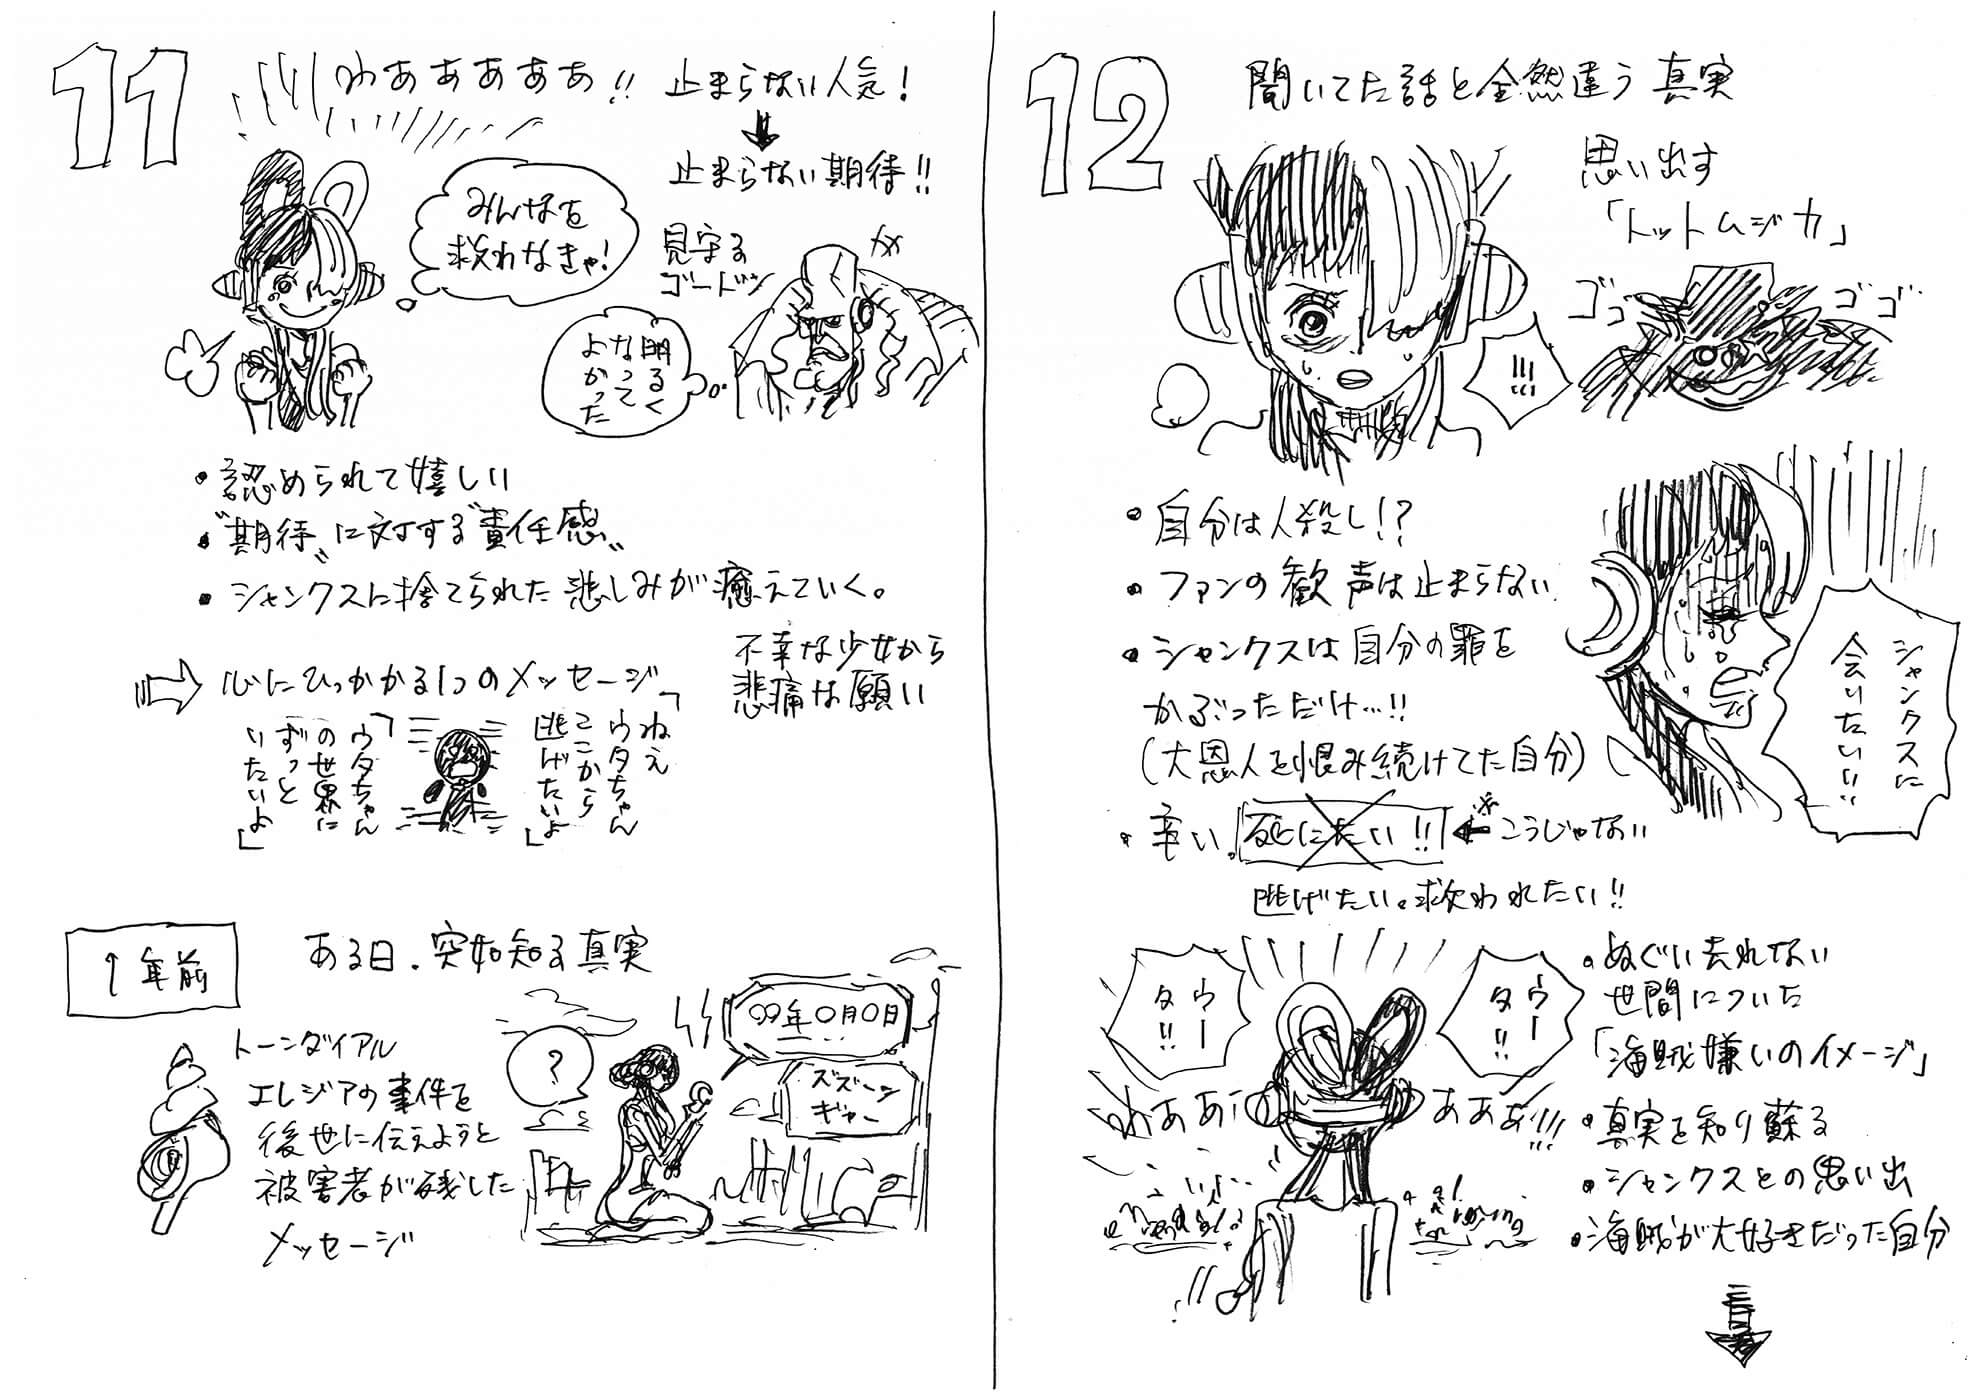 11
わあああああ!!
止まらない人気!
止まらない期待!!
みんなを
救わなきゃ!
見守る
ゴードン
明るく
なって
よかった
・認められて嬉しい
・"期待"に対する"責任感"
・シャンクスに捨てられた悲しみが癒えていく。
心にひっかかる1つのメッセージ
不幸な少女から
悲痛な願い
「ねえ
ウタちゃん
ここから
逃げたいよ」
「ウタちゃん
の世界に
ずっと
いたいよ」
1年前
ある日.突如知る真実
トーンダイアル
エレジアの事件を
後世に伝えようと
被害者が残した
メッセージ
?
〇9年〇月〇日
ズズーン
ギャー
12
聞いてた話と全然違う真実
思い出す
「トットムジカ」
ゴゴ
ゴゴ
!!!
・自分は人殺し!?
・ファンの歓声は止まらない
・シャンクスは自分の罪を
かぶっただけ…!!
(大恩人を恨み続けてた自分)
シャンクスに
会いたい!!
・辛い.死にたい!!
※こうじゃない
逃げたい。救われたい!!
ウー
タ!!
ウー
タ!!
わああ
あああ!!!
・ぬぐい去れない
世間についた
「海賊嫌いのイメージ」
・真実を知り蘇る
・シャンクスとの思い出
・海賊が大好きだった自分